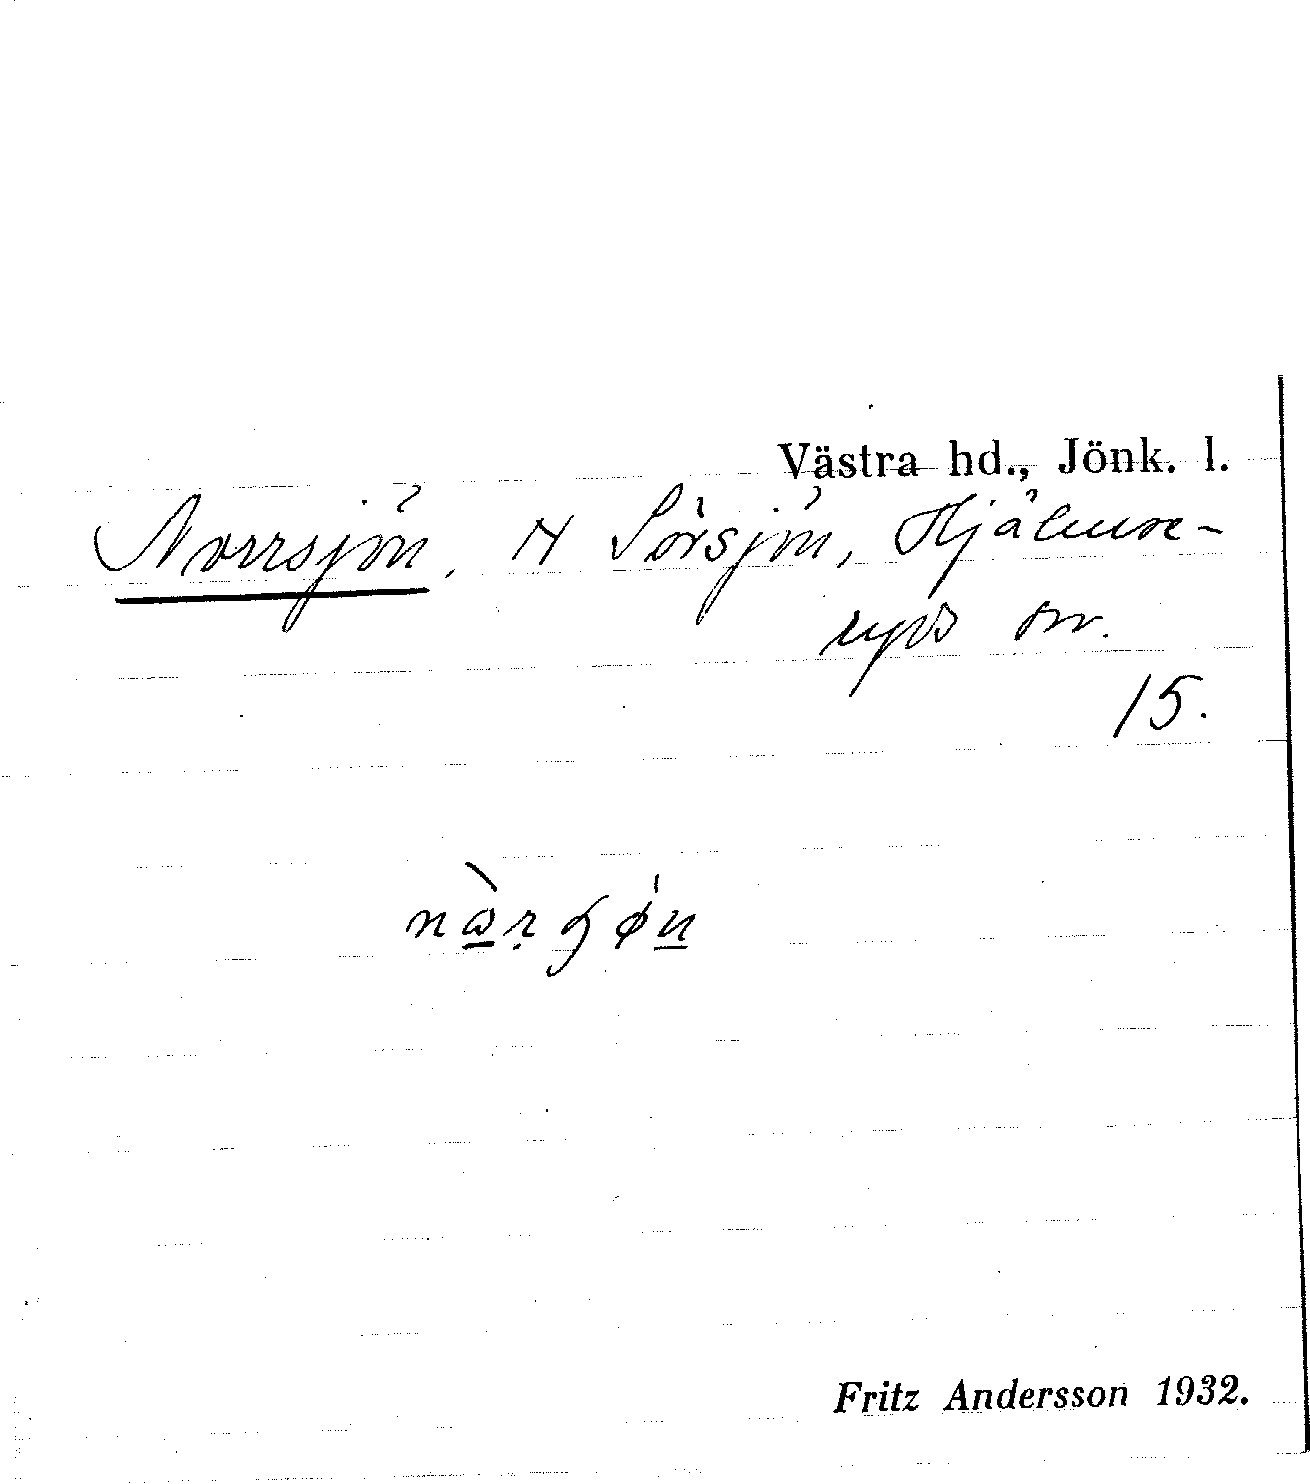 Västra hd., Jönk. l.
Norrsjön, N Sörsjön, Hjälmse-
ryds sn.
15.
Fritz Andersson 1932.